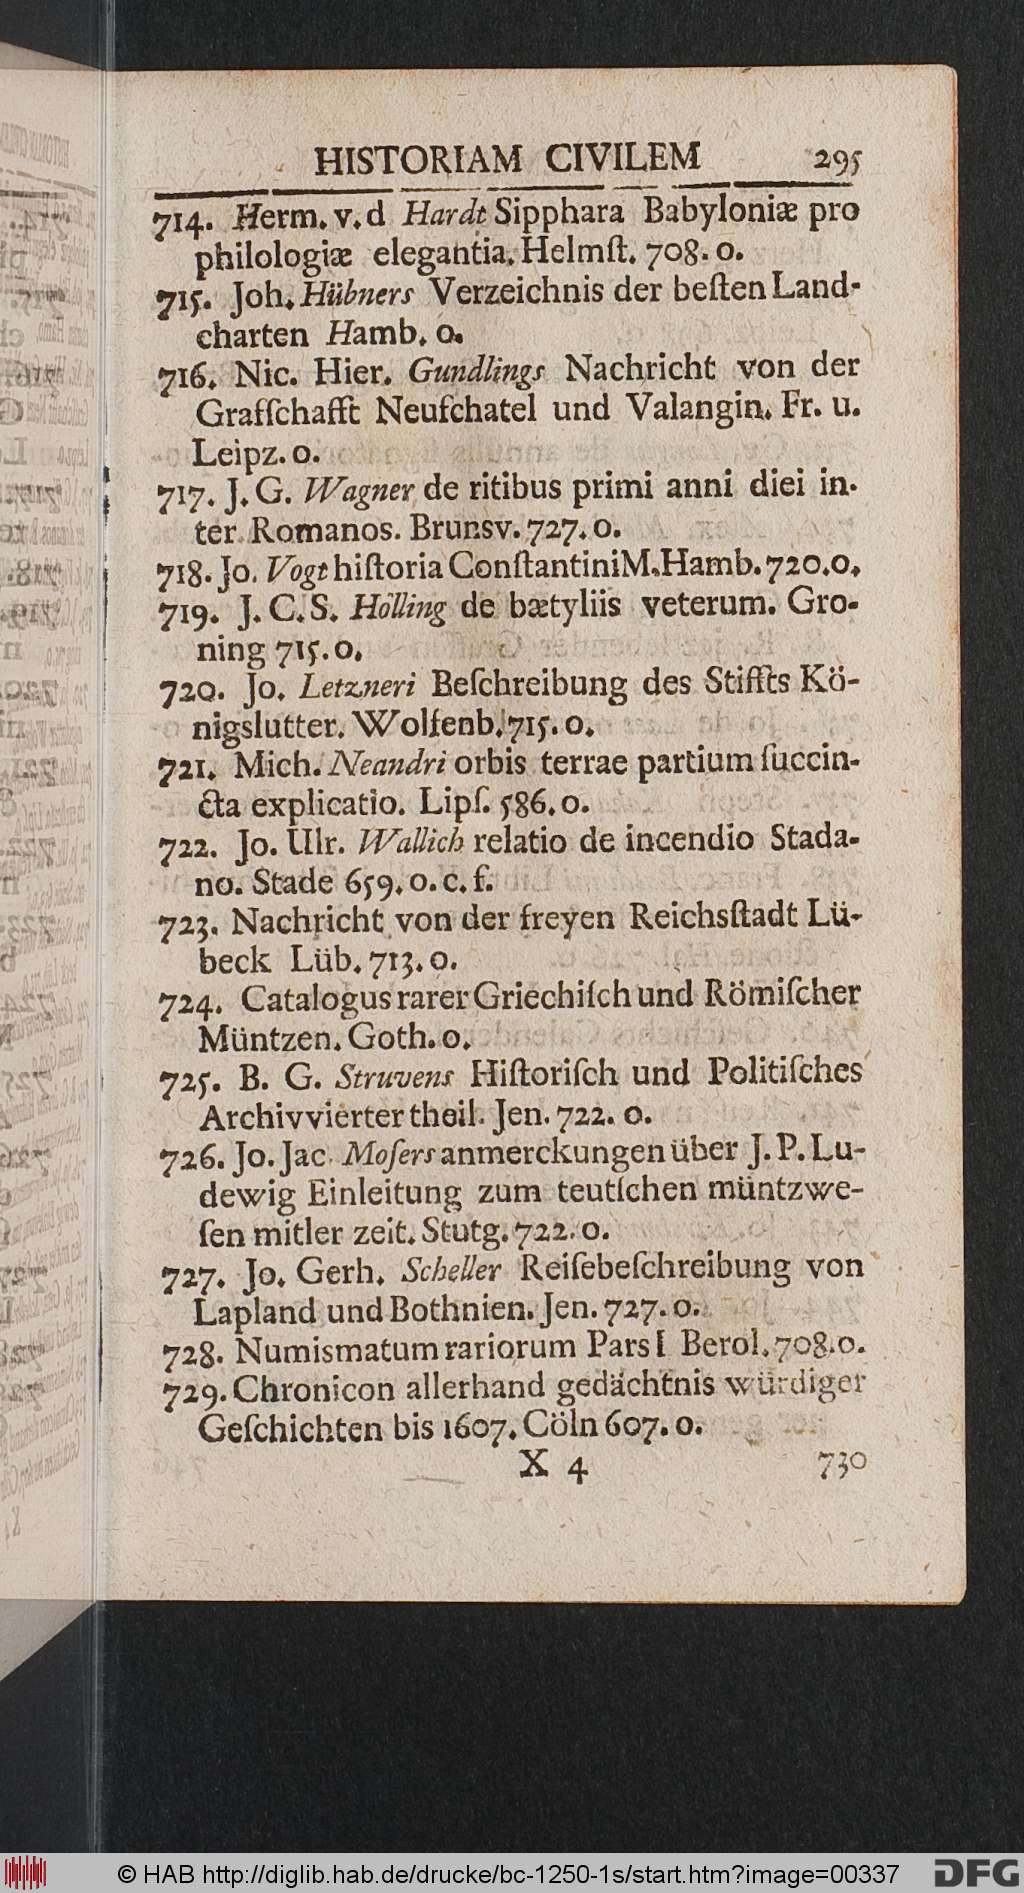 HISTORIAM CIVILEM 295
714. Herm. v. d Hardt Sipphara Babyloniæ pro
philologiæ elegantia. Helmſt. 708. o.
715. Joh. Hübners Verzeichnis der beſten Land-
charten Hamb. o.
716. Nic. Hier. Gundlings Nachricht von der
Grafſchafft Neufchatel und Valangin. Fr. u.
Leipz. o.
717. J. G. Wagner de ritibus primi anni diei in-
ter Romanos. Brunsv. 727. o.
718. Jo. Vogt hiſtoria Conſtantini M. Hamb. 720. o.
719. J. C. S. Hölling de bætyliis veterum. Gro-
ning 715. o.
720. Jo. Letzneri Beſchreibung des Stiffts Kö-
nigslutter. Wolfenb. 715. o.
721. Mich. Neandri orbis terrae partium ſuccin-
cta explicatio. Lipſ. 586. o.
722. Jo. Ulr. Wallich relatio de incendio Stada-
no. Stade 659. o. c. f.
723. Nachricht von der freyen Reichsſtadt Lü-
beck Lüb. 713. o.
724. Catalogus rarer Griechiſch und Römiſcher
Müntzen. Goth. o.
725. B. G. Struvens Hiſtoriſch und Politiſches
Archiv vierter theil. Jen. 722. o.
726. Jo. Jac. Moſers anmerckungen über J. P. Lu-
dewig Einleitung zum teutſchen müntzwe-
ſen mitler zeit. Stutg. 722. o.
727. Jo. Gerh. Scheller Reiſebeſchreibung von
Lapland und Bothnien. Jen. 727. o.
728. Numismatum rariorum Pars I Berol. 708. o.
729. Chronicon allerhand gedächtnis würdiger
Geſchichten bis 1607. Cöln 607. o.
X 4 730
© HAB http://diglib.hab.de/drucke/bc-1250-1s/start.htm?image=00337 DFG